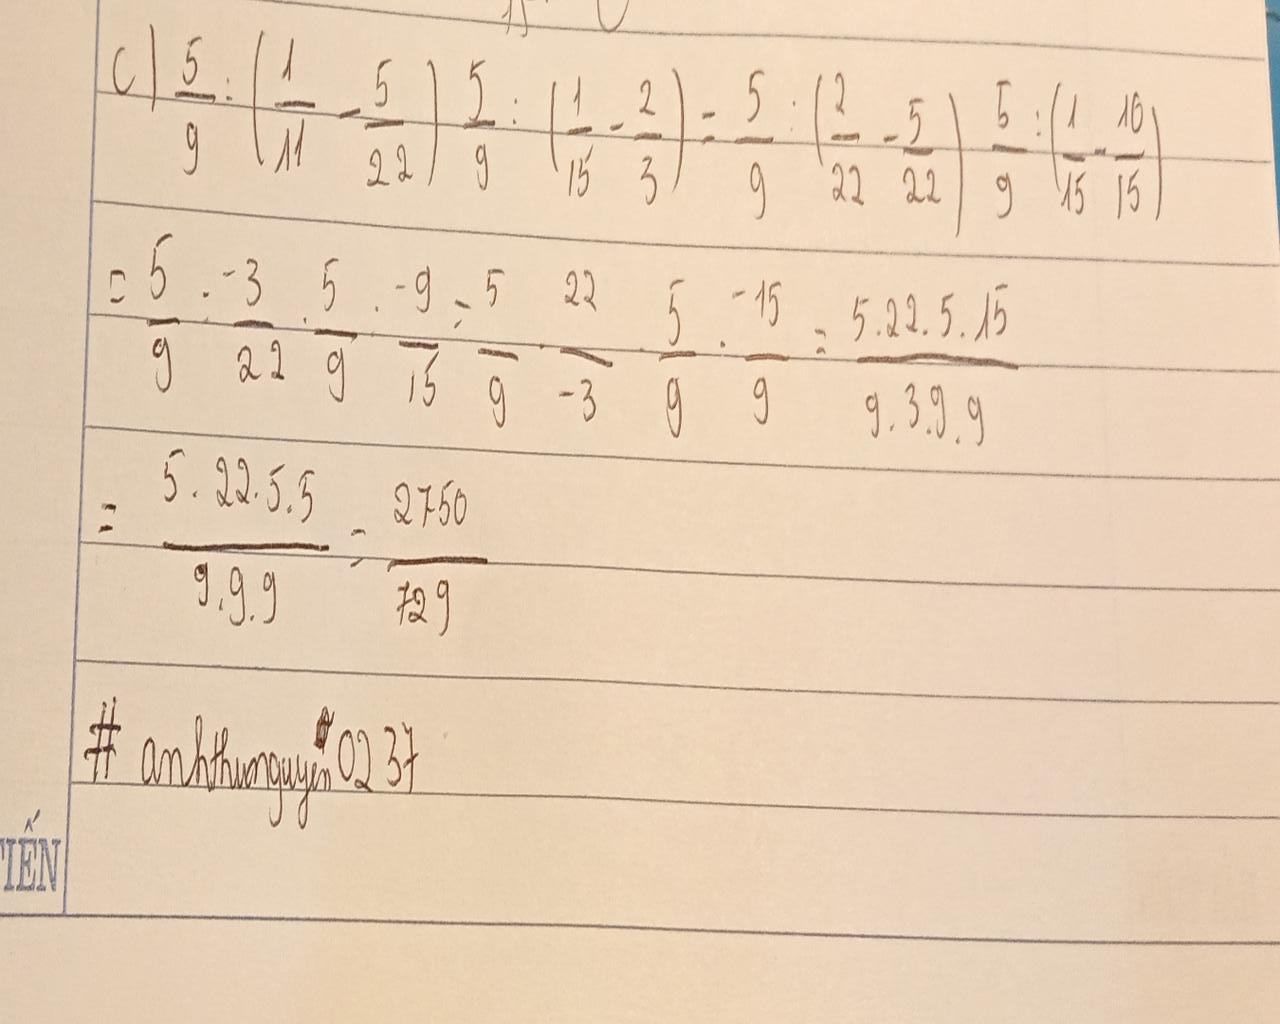 c) 5/9 : (1/11 - 5/22) 5/9 : (1/15 - 2/3) = 5/9 : (2/22 - 5/22) 5/9 : (1/15 - 10/15)
= 5/9 : -3/22 . 5/9 : -9/15 = 5/9 . 22/-3 . 5/9 . -15/9 = 5.22.5.15/9.3.9.9
= 5.22.5.5/9.9.9 = 2750/729
# anhthunguyen0237
TIẾN